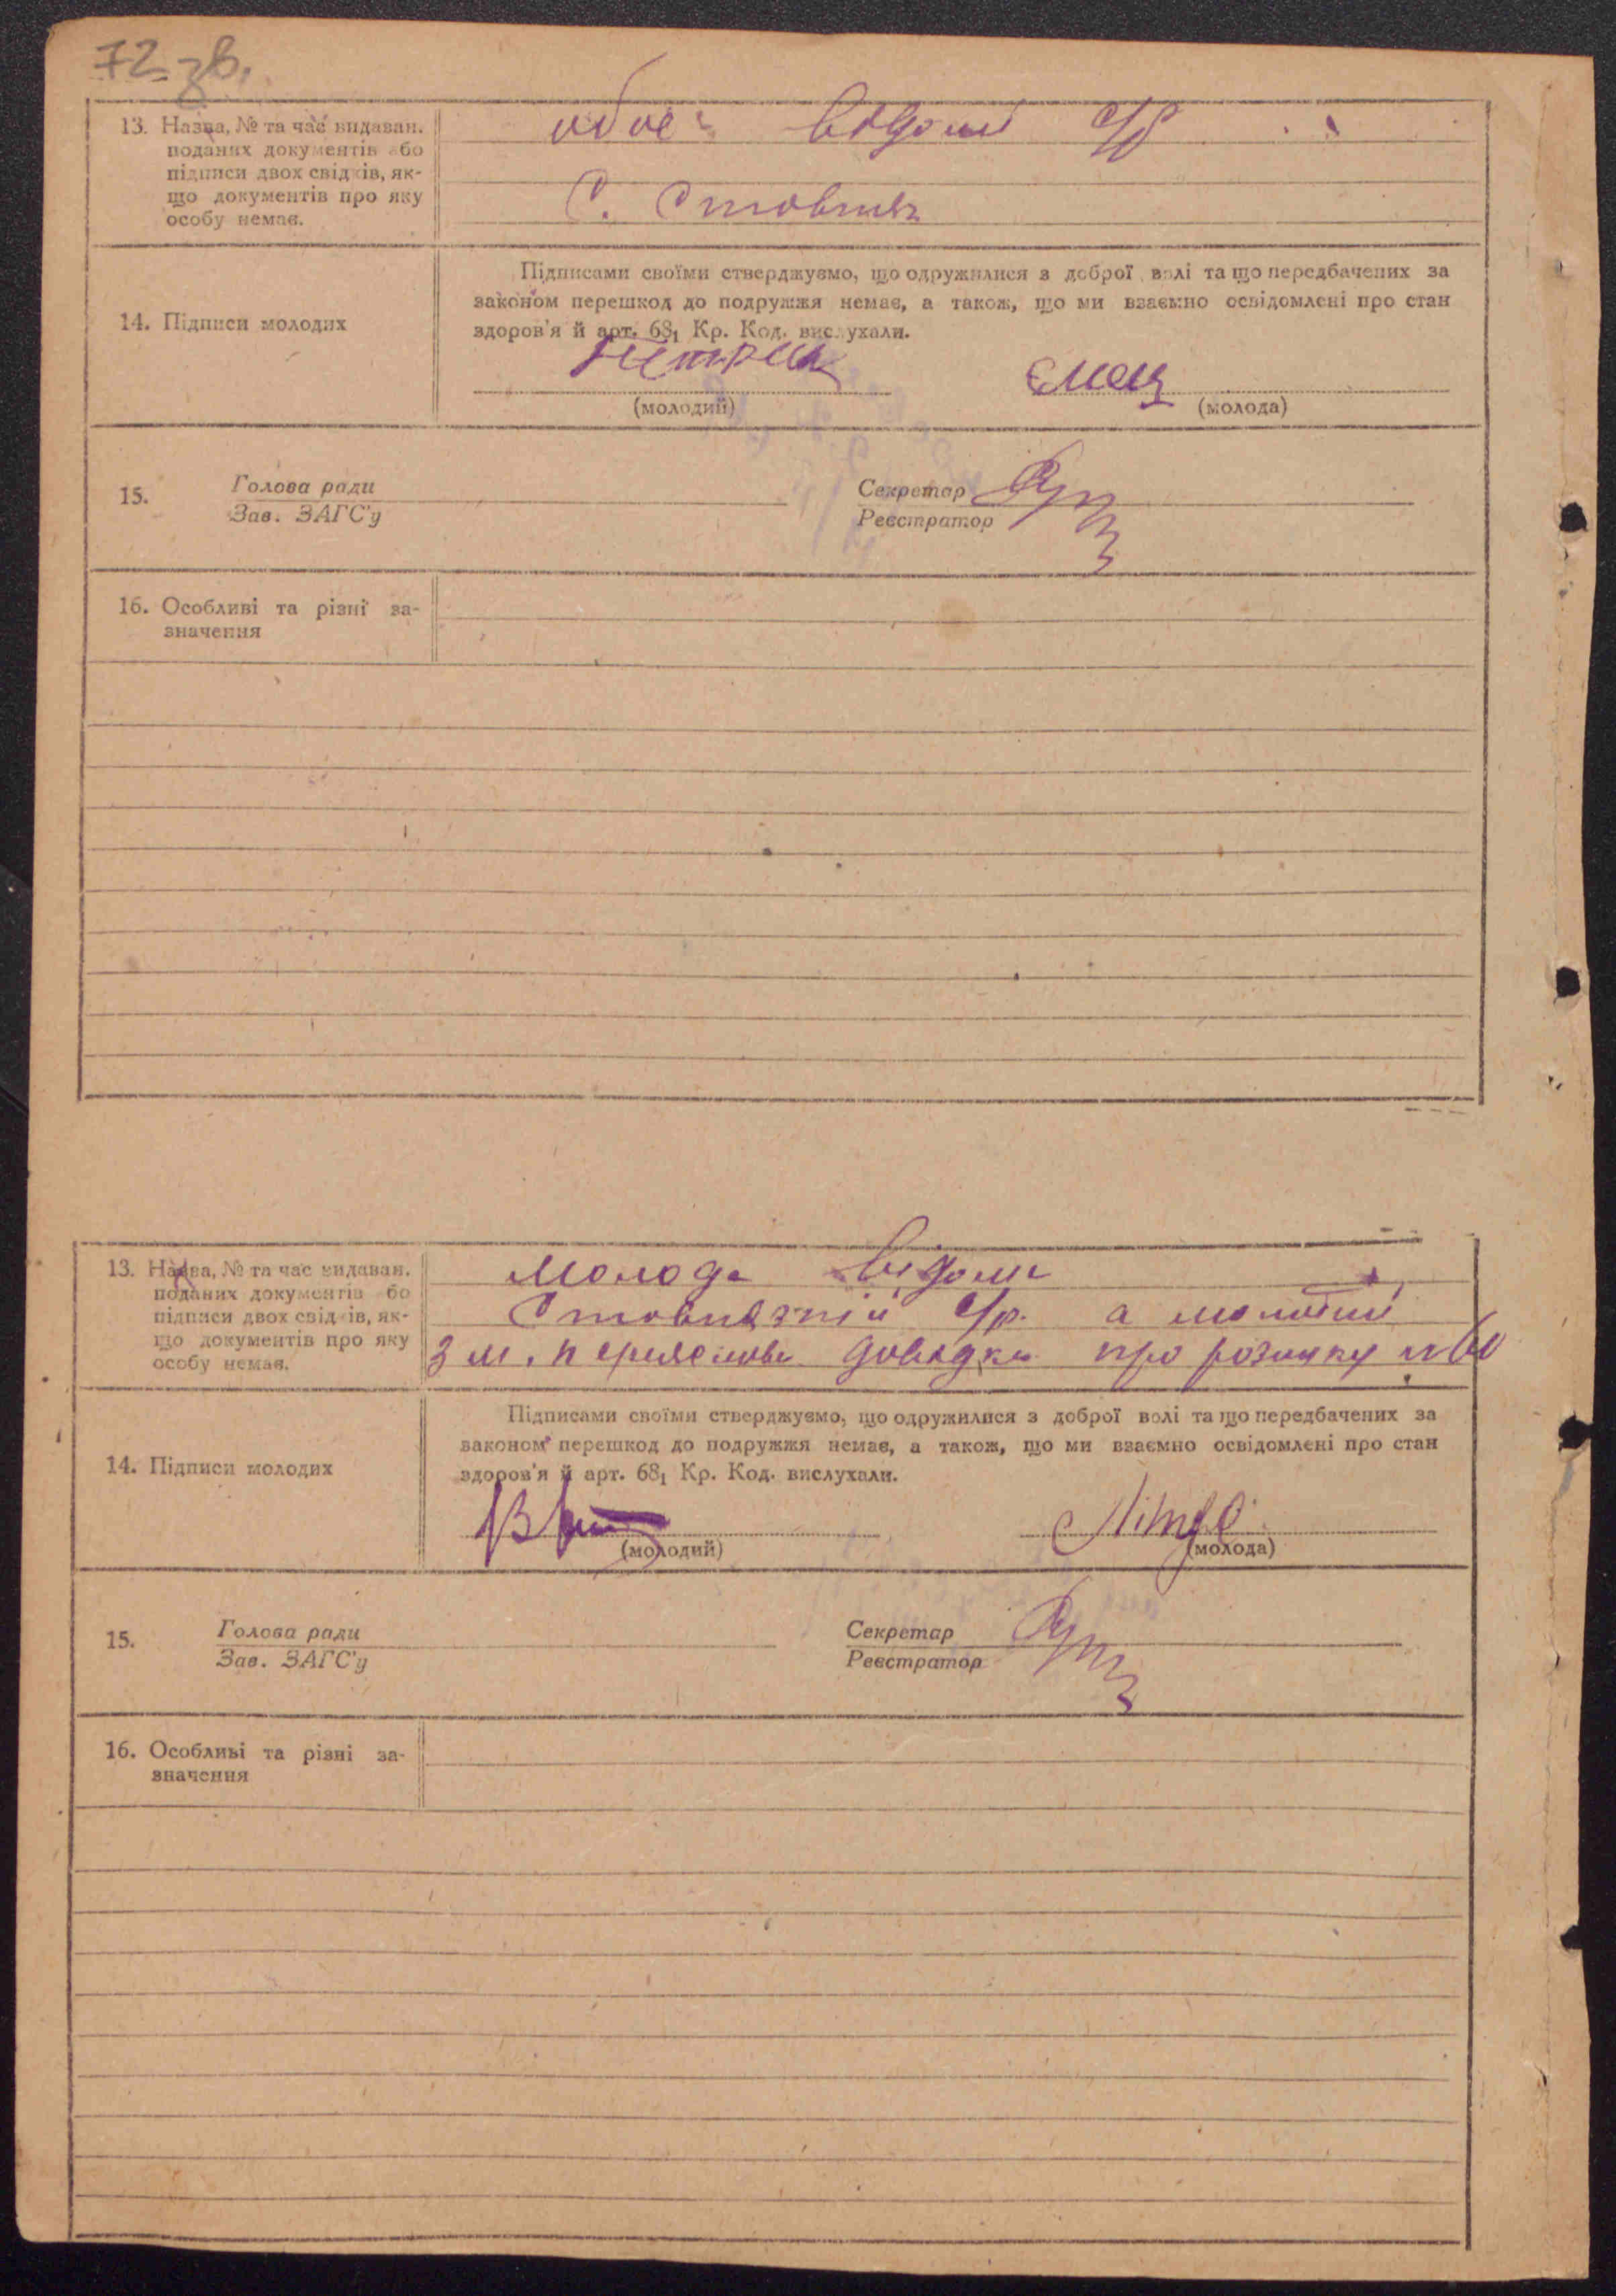 72 зв.
13. Назва, № та час видаван.
поданих документів або
підписи двох свідків, як-
що документів про яку
особу немає.
обоє відомі с/р
С.
14. Підписи молодих
Підписами своїми стверджуємо, що одружилися з доброї волі та що передбачених за
законом перешкод до подружжя немає, а також, що ми взаємно освідомлені про стан
здоров'я й арт. 68₁ Кр. Код. вислухали.
Ємец
(молодий) (молода)
15. Голова ради Секретар
Зав. ЗАГС'у Реєстратор
16. Особливі та різні за-
значення
13. Назва, № та час видаван.
поданих документів або
підписи двох свідків, як-
що документів про яку
особу немає.
молода відома
с/р. а молодий
з м. довідка про № 60
14. Підписи молодих
Підписами своїми стверджуємо, що одружилися з доброї волі та що передбачених за
законом перешкод до подружжя немає, а також, що ми взаємно освідомлені про стан
здоров'я й арт. 68₁ Кр. Код. вислухали.
(молодий) (молода)
15. Голова ради Секретар
Зав. ЗАГС'у Реєстратор
16. Особливі та різні за-
значення